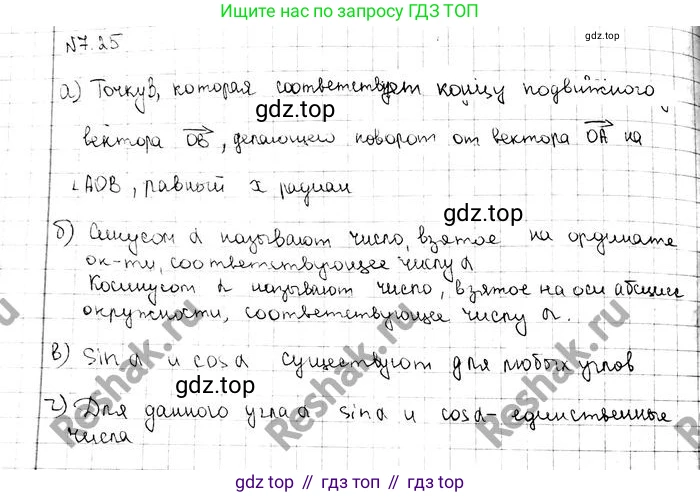 Ищите нас по запросу ГДЗ ТОП
№7.25
а) Точку В, которая соответствует концу подвижного
gdz.top
вектора OB, делающего поворот от вектора OA на
∠AOB, равный x радиан
gdz.top
б) Синусом α называют число, взятое на ординате
ок-ти, соответствующее числу α
Косинусом α называют число, взятое на оси абсцисс
окружности, соответствующее числу α.
в) sin α и cos α существуют для любых углов
gdz.top
г) Для данного угла α sin α и cos α - единственные
числа
Reshak.ru
Reshak.ru
Reshak.ru
gdz.top // гдз.топ // gdz.top // гдз.топ // gdz.top